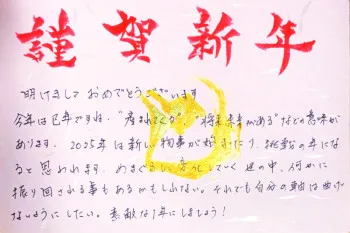 謹賀新年
明けまして おめでとうございます
今年は巳年ですね。"産まれてくる"、"将来があるなどの意味が
あります。2025年は新しい物事が始まったり、挑戦の年になる
と思われます。めまぐるしく変化していく世の中、何かに
振り回される事もあるかもしれない。それでも自分の軸は曲げ
ないようにしたい。素敵な1年にしましょう!